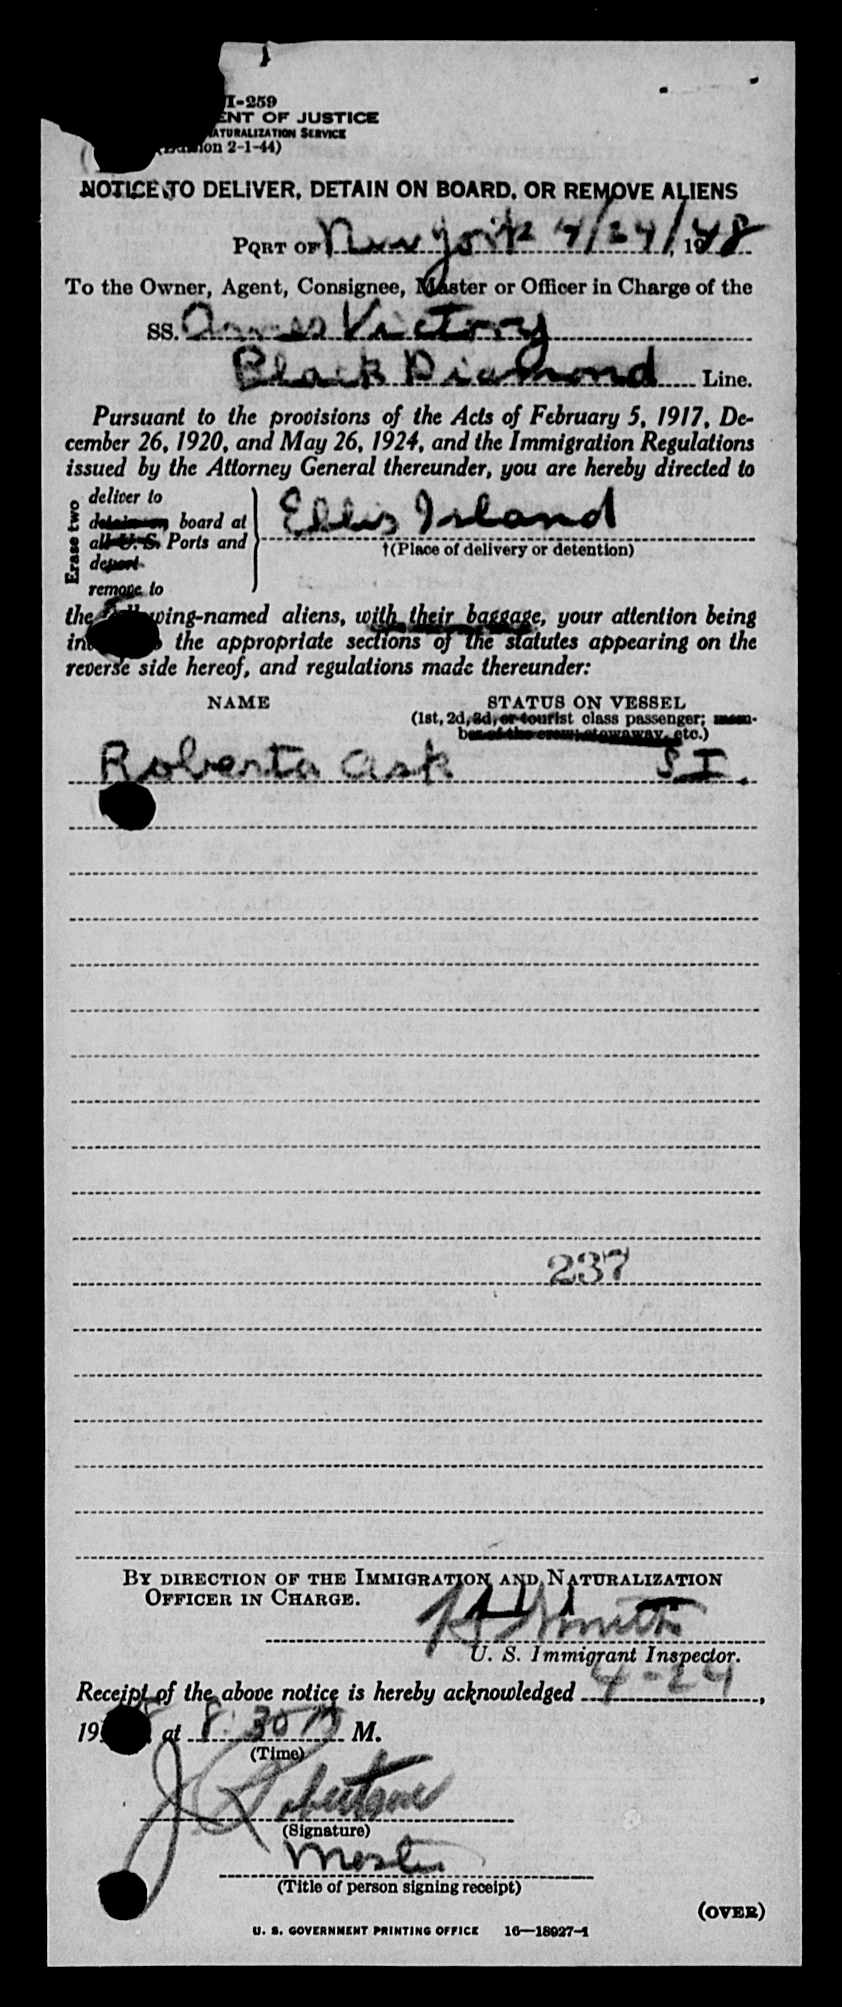 I-259
ENT OF JUSTICE
NATURALIZATION SERVICE
(Edition 2-1-44)
NOTICE TO DELIVER, DETAIN ON BOARD, OR REMOVE ALIENS
PORT OF New York 4/24/, 1948
To the Owner, Agent, Consignee, Master or Officer in Charge of the
SS. Ames Victory
Black Diamond Line.
Pursuant to the provisions of the Acts of February 5, 1917, De-
cember 26, 1920, and May 26, 1924, and the Immigration Regulations
issued by the Attorney General thereunder, you are hereby directed to
Erase two
deliver to
detain on board at
all U. S. Ports and
deport
remove to
Ellis Island
†(Place of delivery or detention)
the following-named aliens, with their baggage, your attention being
the appropriate sections of the statutes appearing on the
reverse side hereof, and regulations made thereunder:
NAME STATUS ON VESSEL
(1st, 2d, 3d, or tourist class passenger; mem-
ber of the crew; stowaway, etc.)
Roberta Ask S I.
237
BY DIRECTION OF THE IMMIGRATION AND NATURALIZATION
OFFICER IN CHARGE.
U. S. Immigrant Inspector.
Receipt of the above notice is hereby acknowledged 4-24,
198 at 8:30 M.
(Time)
J Robertson
(Signature)
Master
(Title of person signing receipt)
(OVER)
U. S. GOVERNMENT PRINTING OFFICE 16—18927-1